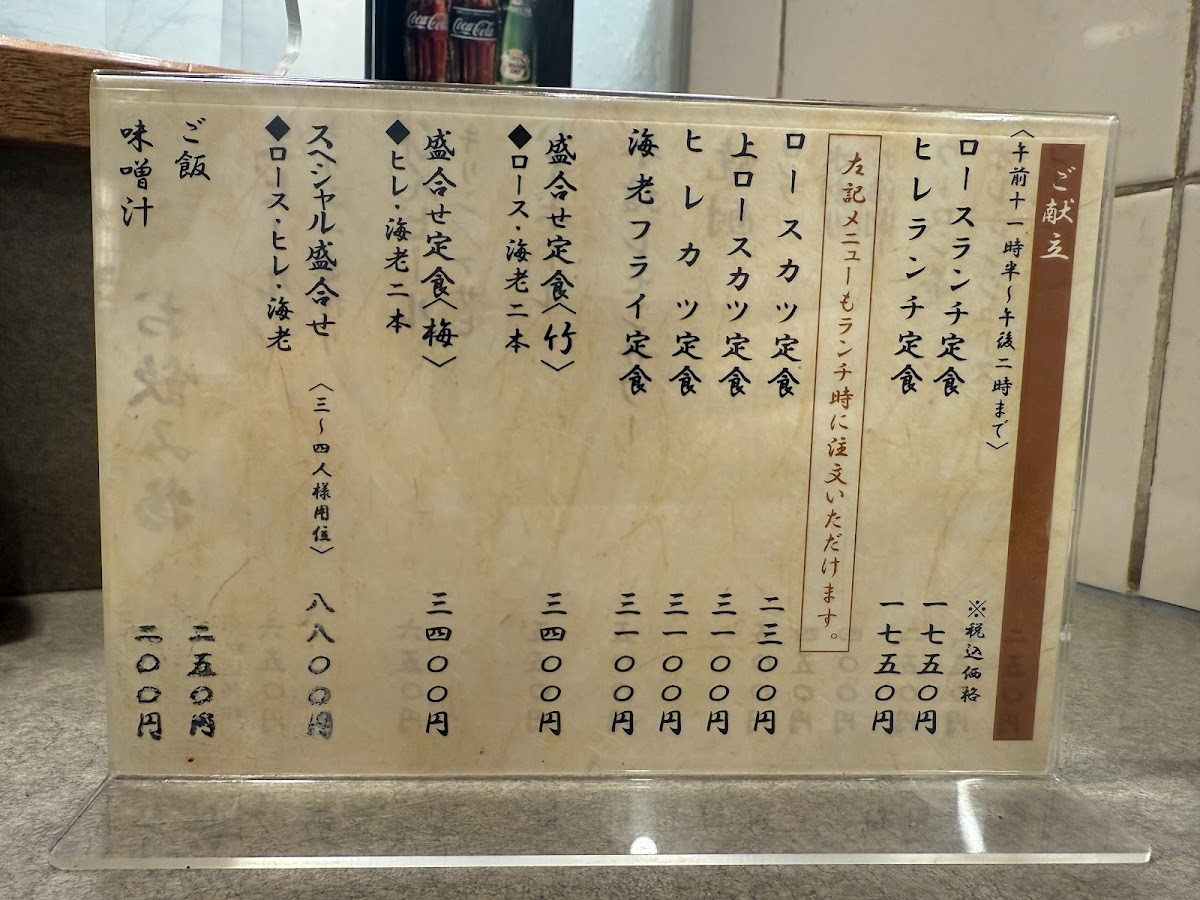 ご献立
〈午前十一時半〜午後二時まで〉
※税込価格
ロースランチ定食 一七五〇円
ヒレランチ定食 一七五〇円
左記メニューもランチ時に注文いただけます。
ロースカツ定食 二三〇〇円
上ロースカツ定食 三一〇〇円
ヒレカツ定食 三一〇〇円
海老フライ定食 三一〇〇円
盛合せ定食〈竹〉 三四〇〇円
◆ロース・海老二本
盛合せ定食〈梅〉 三四〇〇円
◆ヒレ・海老二本
スペシャル盛合せ 〈三〜四人様用位〉 八八〇〇円
◆ロース・ヒレ・海老
ご飯 二五〇円
味噌汁 二〇〇円
Coca-Cola
Coca-Cola